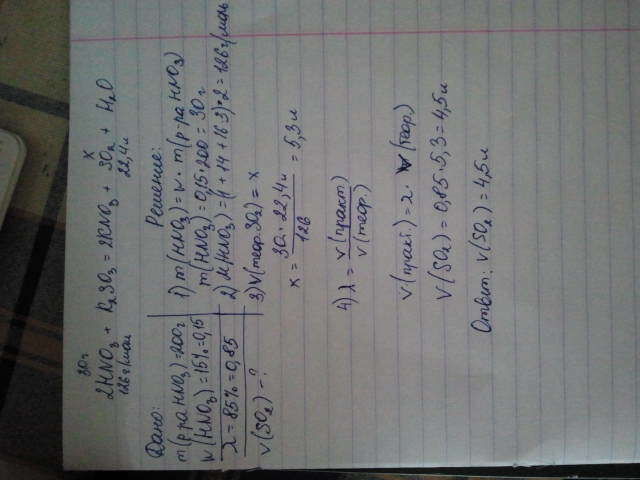 30г x
2HNO3 + K2SO3 = 2KNO3 + SO2 + H2O
126г/моль 22,4л
Дано:
m(р-ра HNO3)=200г
W(HNO3)=15%=0,15
λ=85%=0,85
V(SO2)-?
Решение:
1) m(HNO3)=W·m(р-ра HNO3)
m(HNO3)=0,15·200=30г
2) M(HNO3)=(1+14+16·3)·2=126г/моль
3) V(теор SO2)=x
x = 30·22,4л / 126 = 5,3л
4) λ = V(практ) / V(теор.)
V(практ.)=λ·V(теор.)
V(SO2)=0,85·5,3=4,5л
Ответ: V(SO2)=4,5л